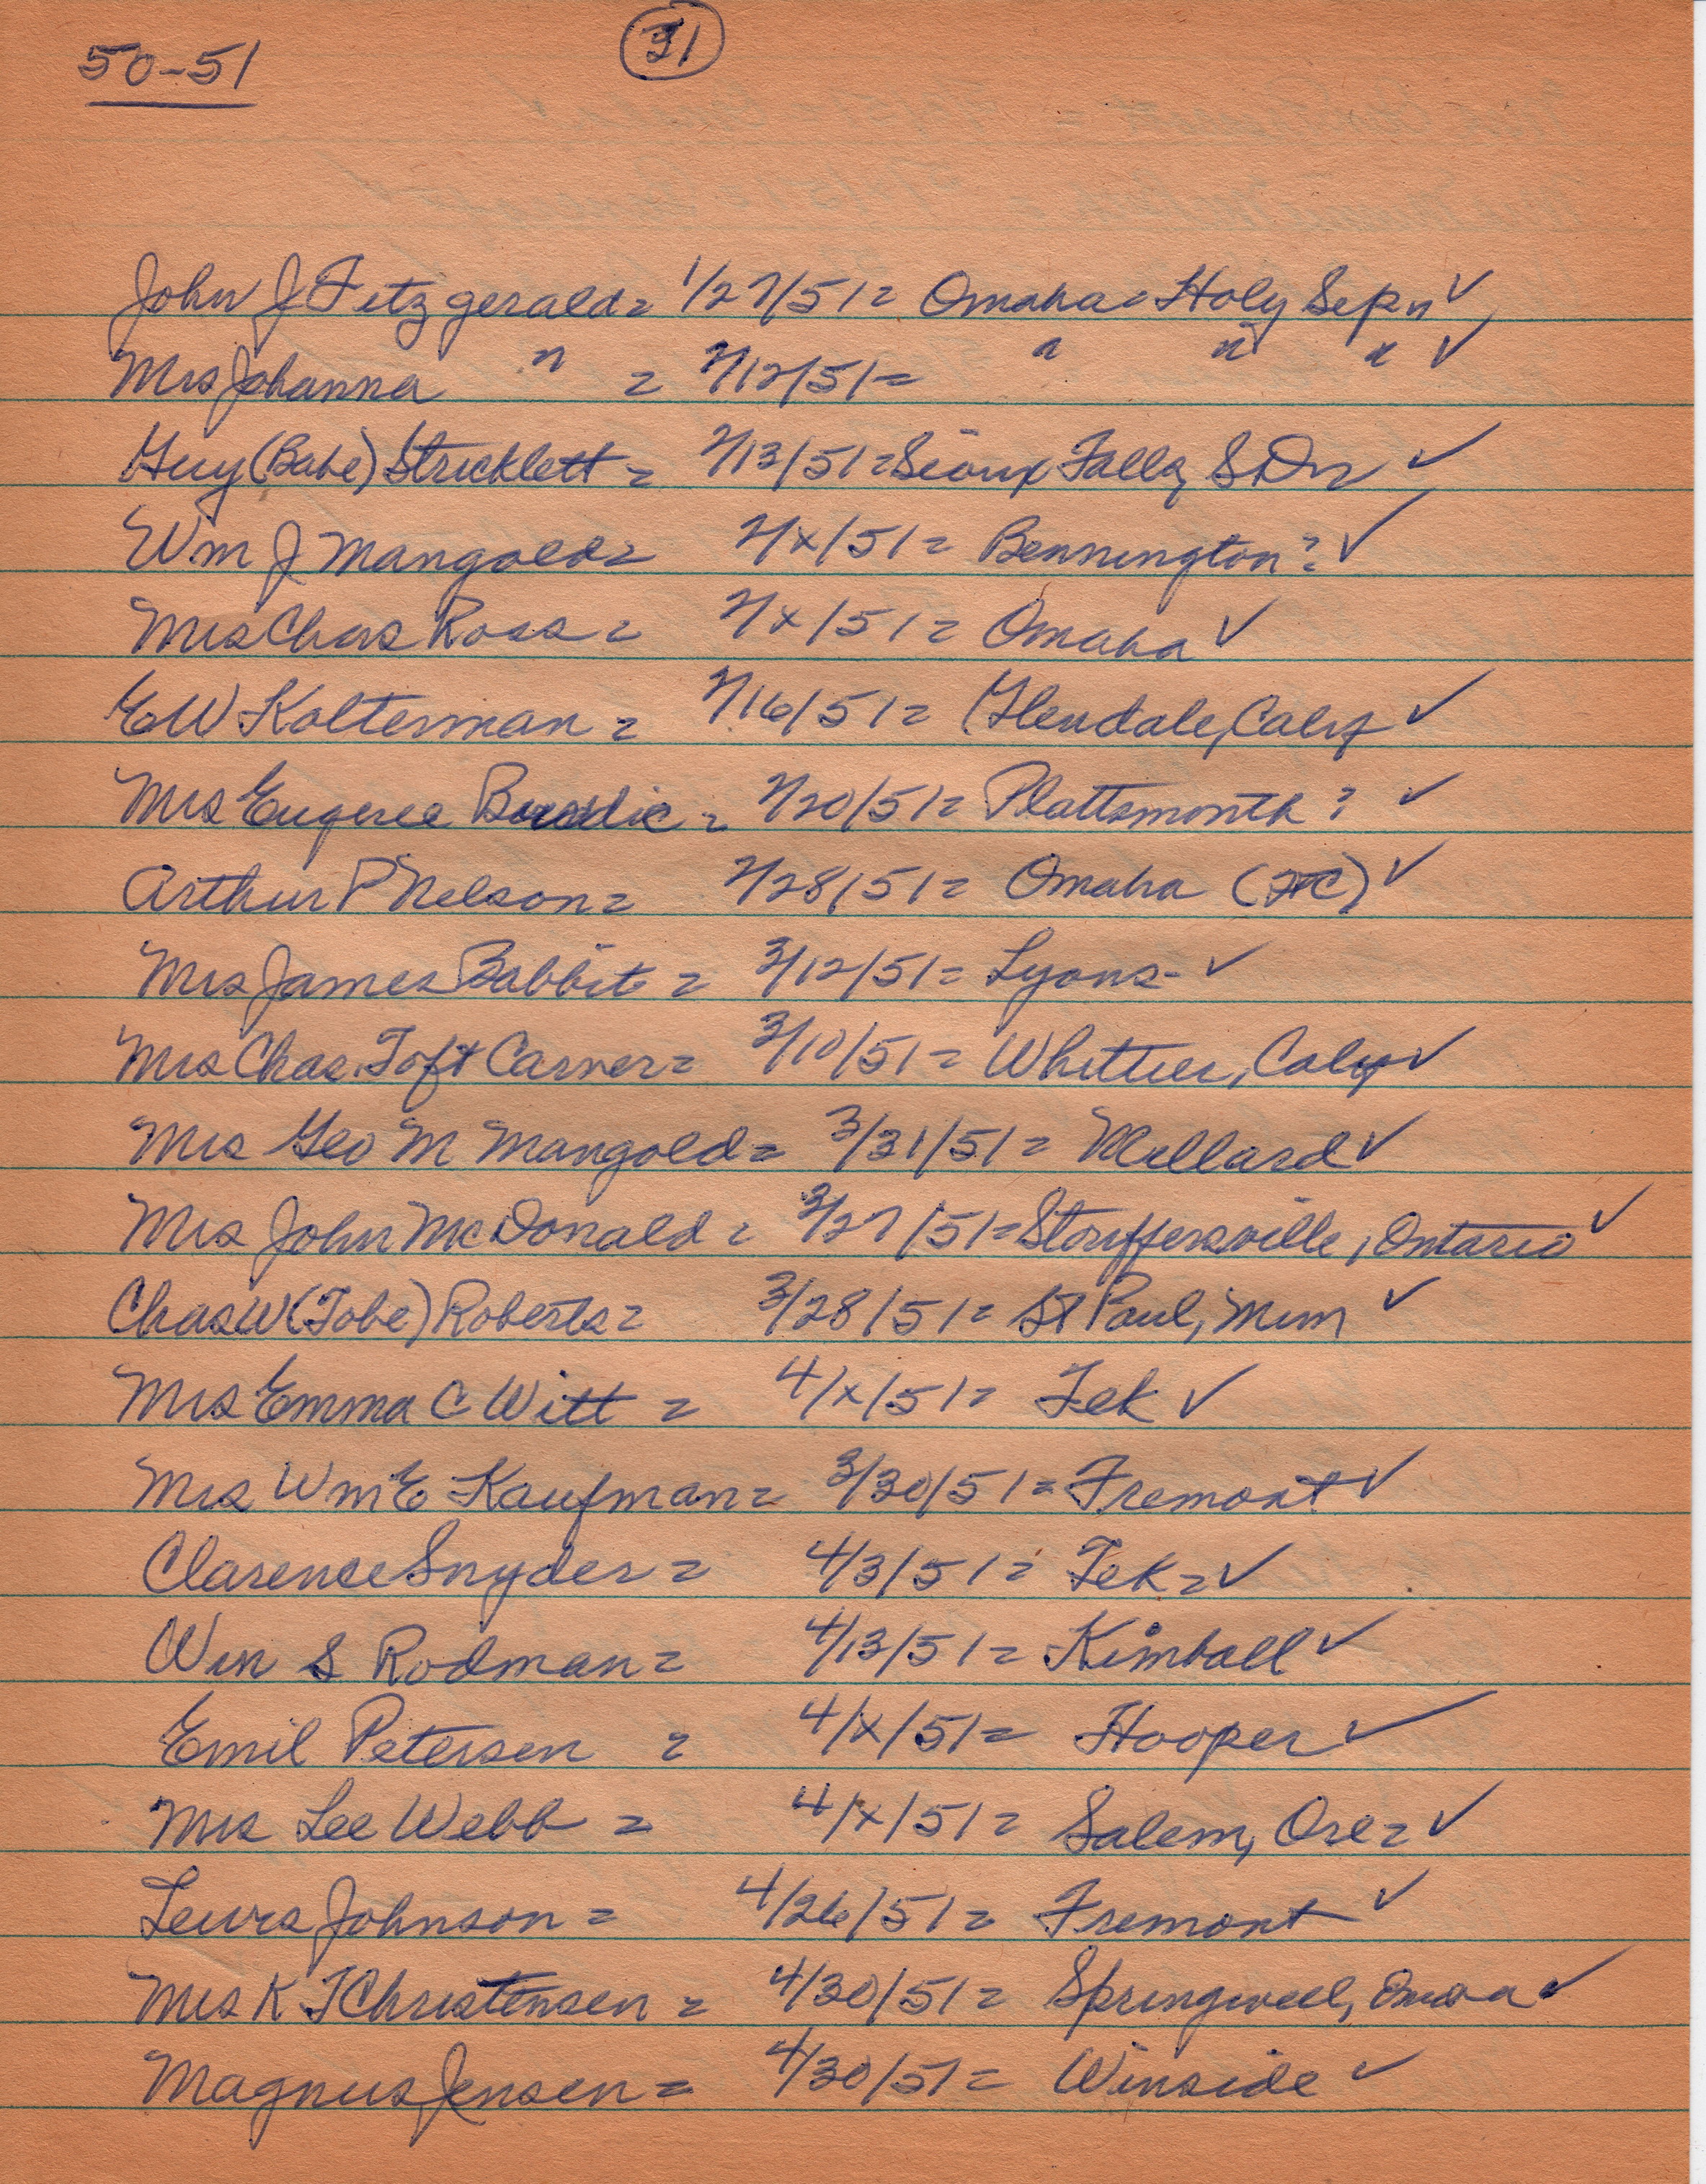 50-51
John J Fitzgerald = 1/27/51 = Omaha = Holy Sep ✓
Mrs Johanna " = 2/12/51 = " " " ✓
Guy (Babe) Stricklett = 2/13/51 = Sioux Falls, SD ✓
Wm J Mangold = 2/x/51 = Bennington? ✓
Mrs Chas Ross = 2/x/51 = Omaha ✓
EW Kolterman = 2/16/51 = Glendale, Calif ✓
Mrs Eugene = 2/20/51 = Plattsmouth? ✓
Arthur P Nelson = 2/28/51 = Omaha ✓
Mrs James Babbit = 3/12/51 = Lyons - ✓
Mrs Chas. Toft Carver = 3/10/51 = Whittier, Calif ✓
Mrs Geo M Mangold = 3/31/51 = Millard ✓
Mrs John McDonald = 3/27/51 = Stouffersville, Ontario ✓
Chas W (Tobe) Roberts = 3/28/51 = St Paul, Minn ✓
Mrs Emma C Witt = 4/x/51 = Tek ✓
Mrs Wm E Kaufman = 3/30/51 = Fremont ✓
Clarence Snyder = 4/3/51 = Tek = ✓
Wm S Rodman = 4/13/51 = Kimball ✓
Emil Petersen = 4/x/51 = Hooper ✓
Mrs Lee Webb = 4/x/51 = Salem, Ore = ✓
Lewis Johnson = 4/26/51 = Fremont ✓
Mrs K T Christensen = 4/30/51 = Springwell, Omaha ✓
Magnus Jensen = 4/30/51 = Winside ✓